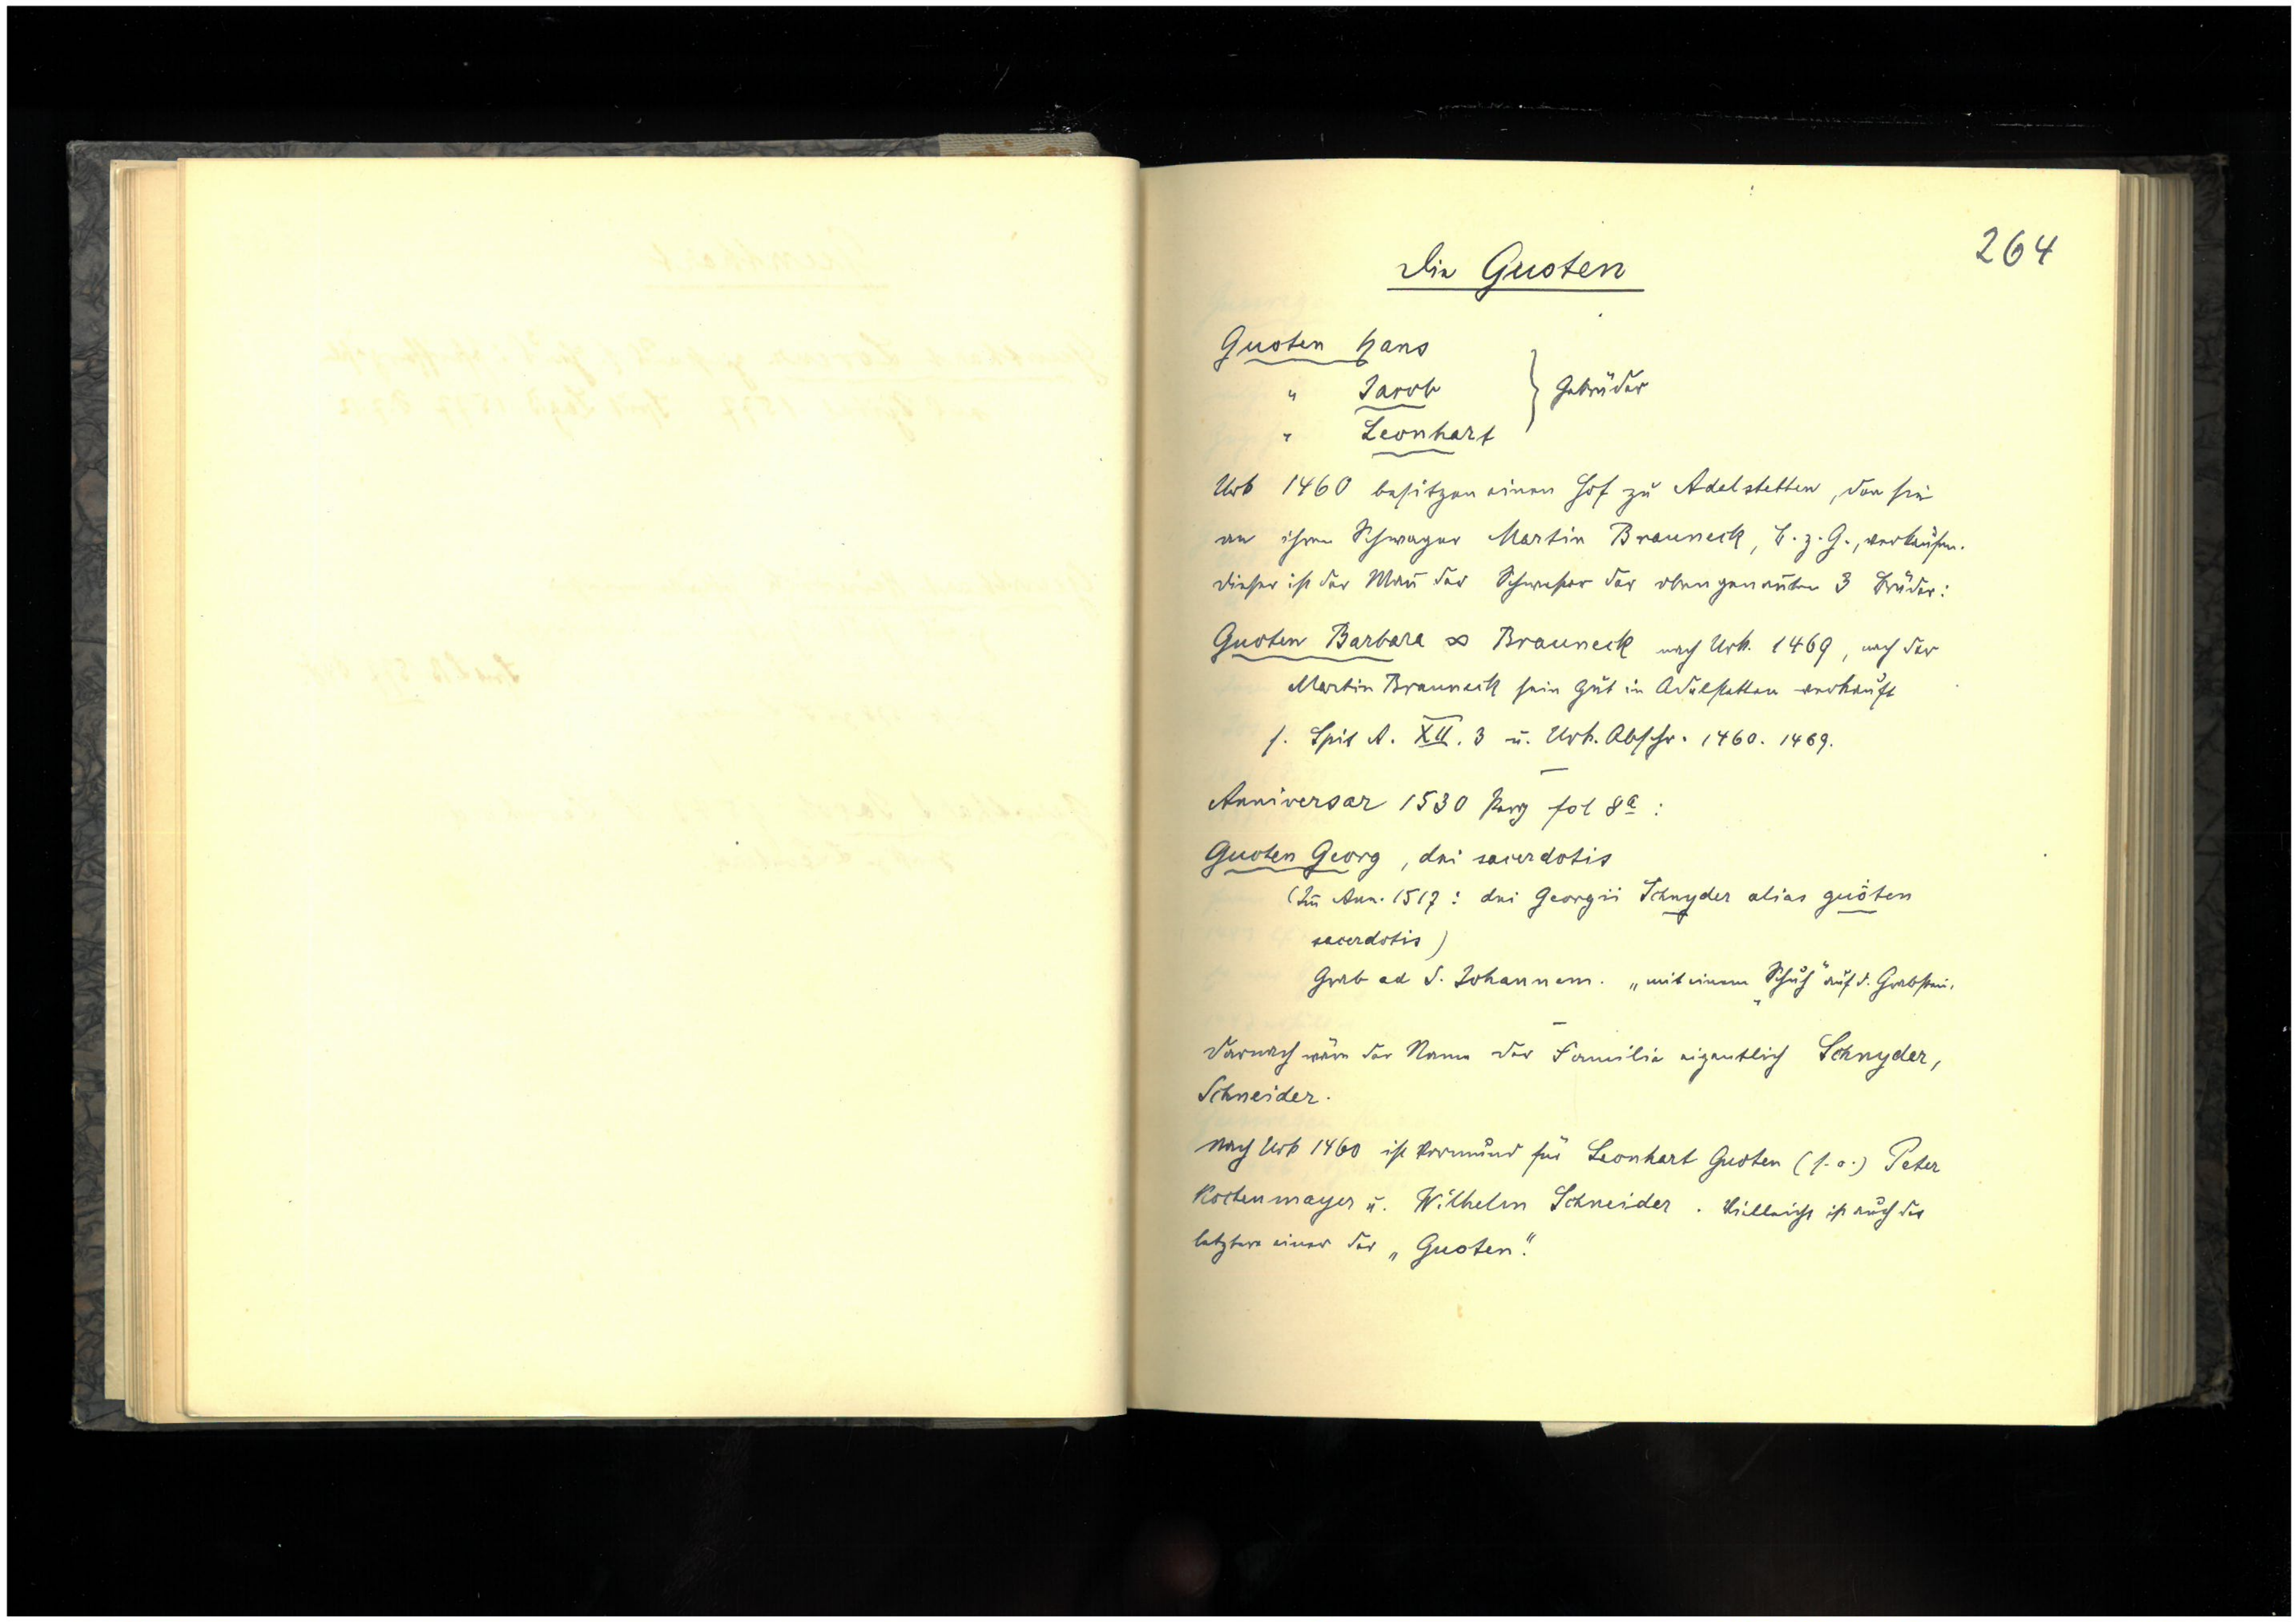 264
Die Guoten
Guoten Hans
" Jacob } Gebrüder
" Leonhart
Urk 1460 besitzen einen Hof zu Adelstetten, den sie
an ihren Schwager Martin Brauneck, B. z. G., verkaufen.
Dieser ist der Mañ der Schwester der obengenañten 3 Brüder:
Guoten Barbara ∞ Brauneck nach Urk. 1469, nach der
Martin Brauneck sein Gut in Adelstetten verkauft
s. Spit A. XII. 3 u. Urk. Abschr. 1460. 1469.
Anniversar 1530 Perg fol 8a :
Guoten Georg, dni sacerdotis
(Im̄ Ann. 1517: dni Georgii Schnyder alias guoten
sacerdotis)
Grab ad S. Johannem. „mit einem Schuch" auf d. Grabstein.
Darnach wäre der Name der Familie eigentlich Schnyder,
Schneider.
Nach Urk 1460 ist Vormund für Leonhart Guoten (s. o.) Peter
Kostenmayer u. Wilhelm Schneider. Vielleicht ist auch der
letztere einer der „Guoten".